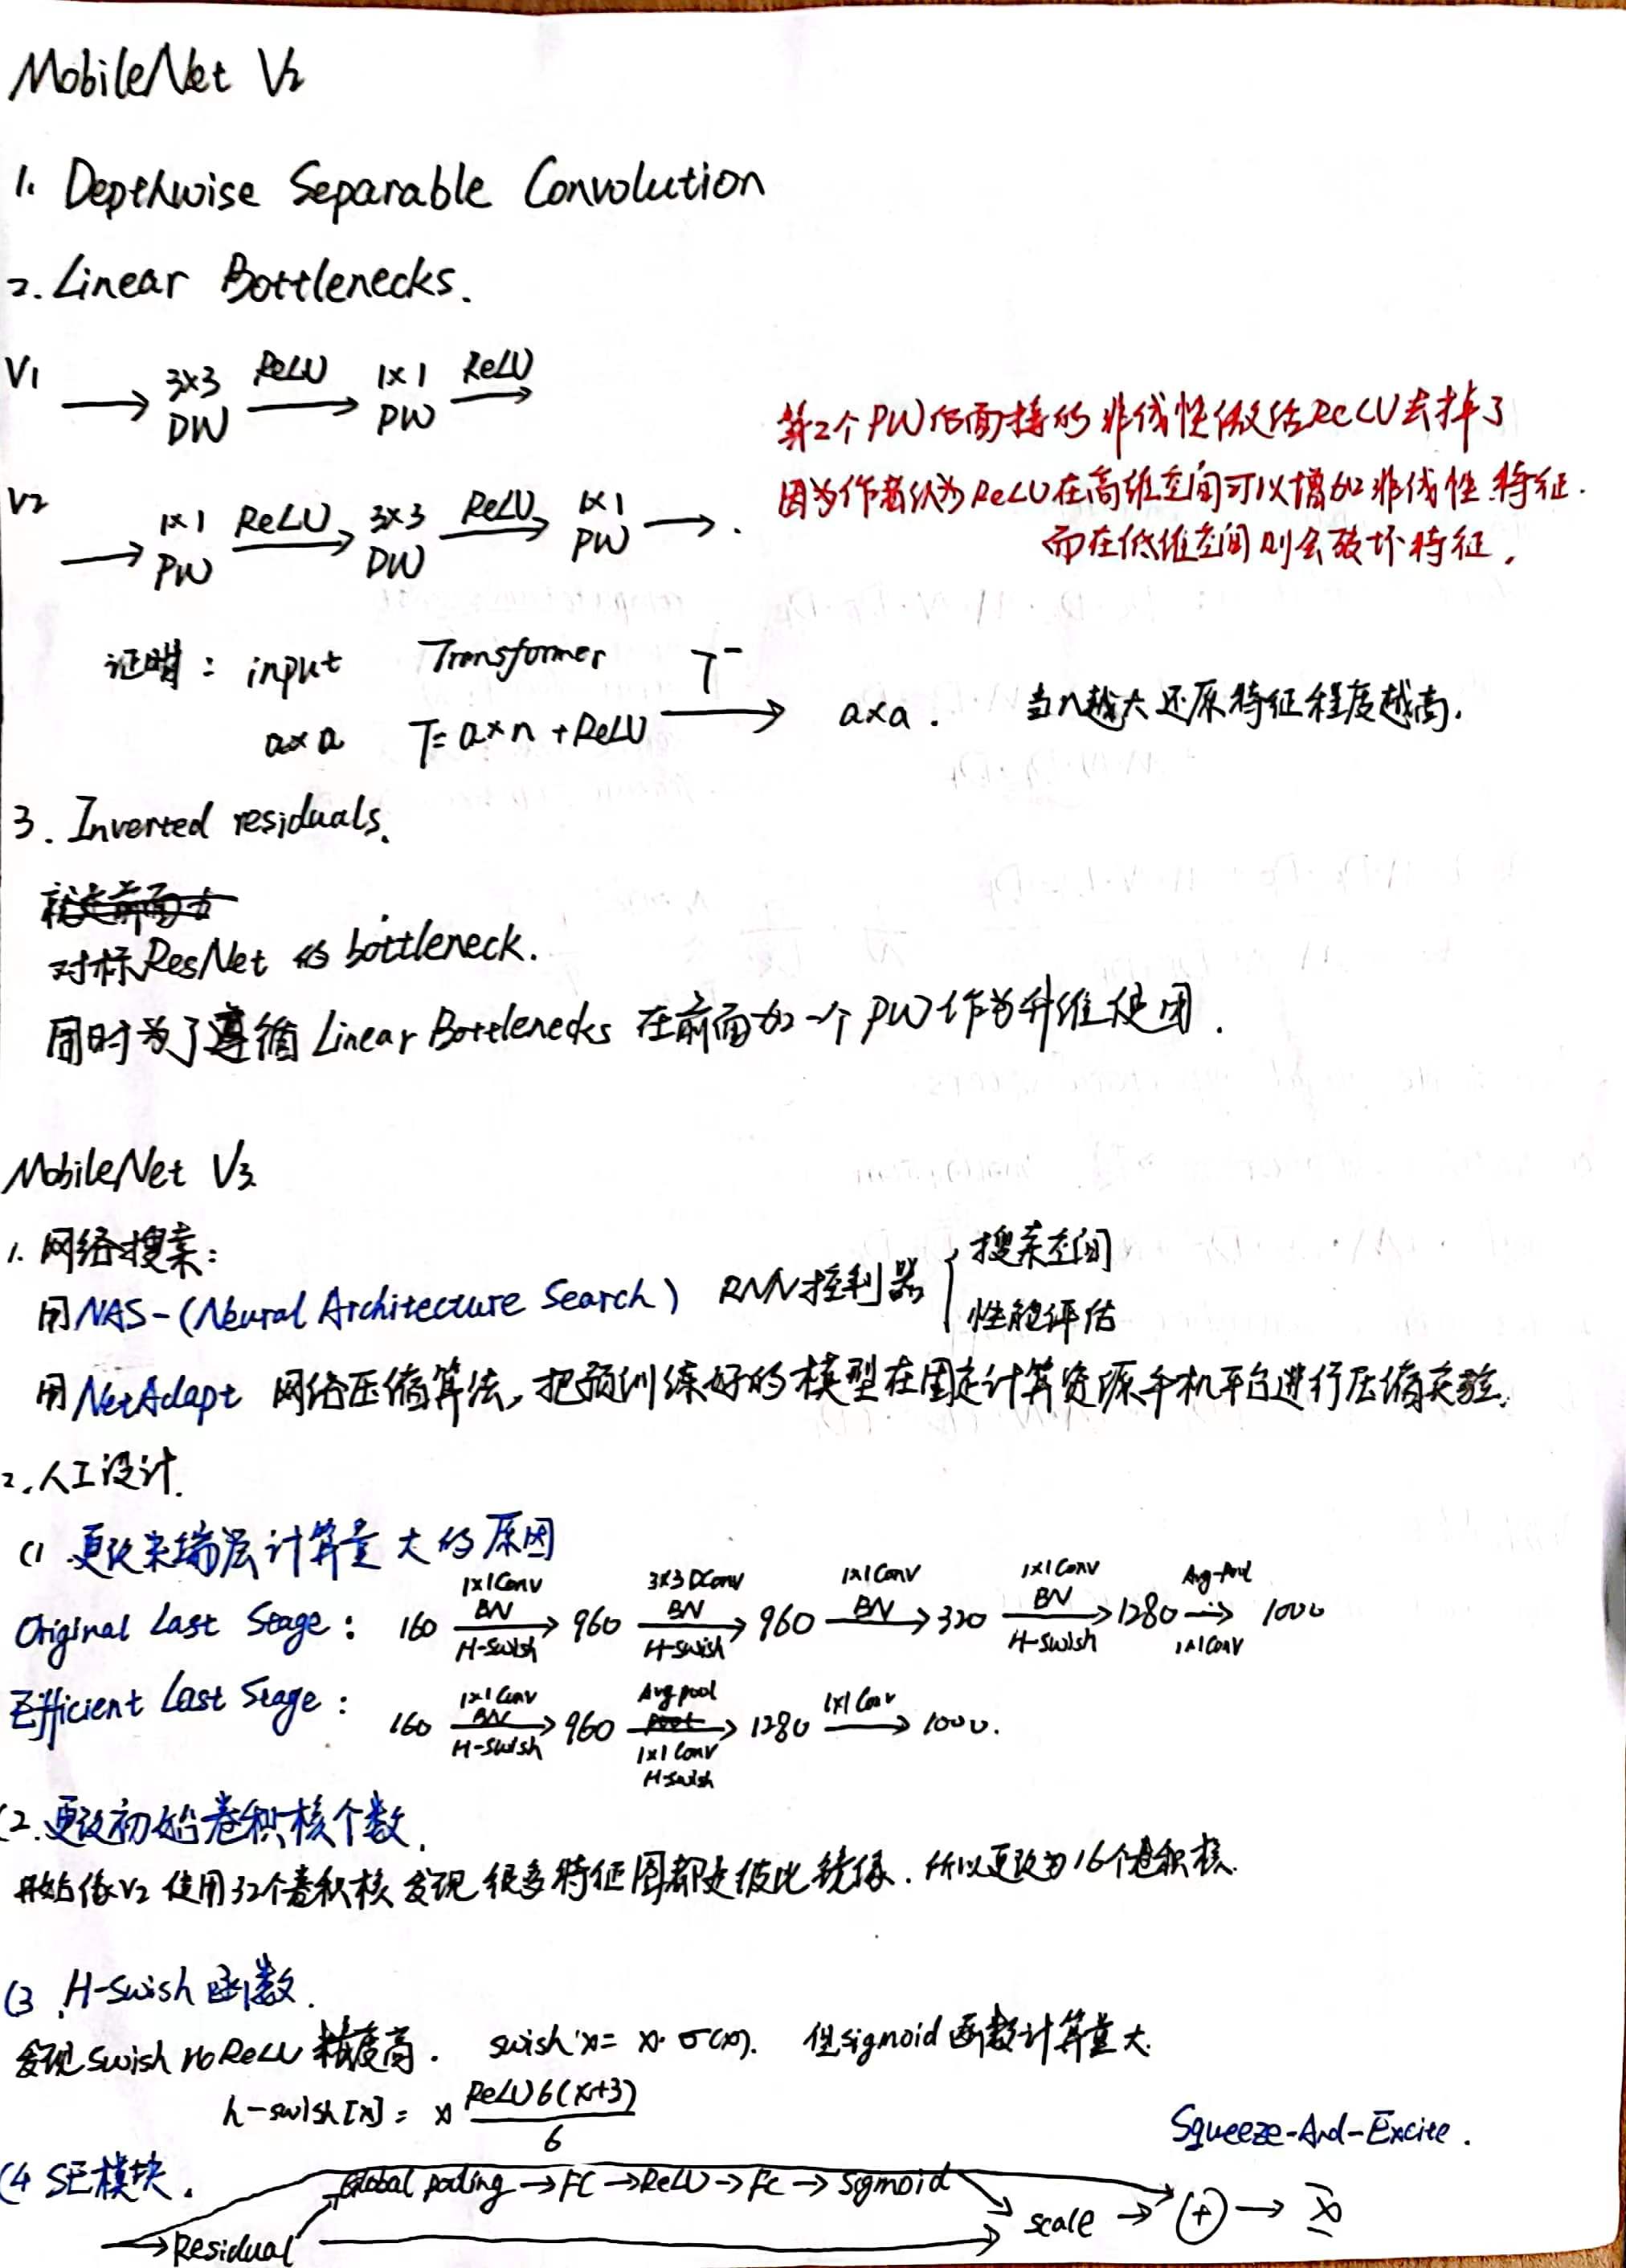 MobileNet V2
1. Depthwise Separable Convolution
2. Linear Bottlenecks.
V1 → 3×3 DW ReLU → 1×1 PW ReLU →
V2 → 1×1 PW ReLU → 3×3 DW ReLU → 1×1 PW → .
第2个PW后面接的非线性激活ReLU去掉了
因为作者认为ReLU在高维空间可以增加非线性特征.
而在低维空间则会破坏特征,
证明: input Transformer T⁻
a×a T= a×n + ReLU → a×a. 当n越大还原特征程度越高.
3. Inverted residuals.
对标ResNet的bottleneck.
同时为了遵循Linear Bottlenecks在前面加一个PW作为升维使用.
MobileNet V3
1. 网络搜索:
用NAS-(Neural Architecture Search) RNN控制器 { 搜索空间
性能评估
用NetAdapt 网络压缩算法, 把预训练好的模型在固定计算资源手机平台进行压缩实验.
2. 人工设计.
(1 更改末端层计算量大的原因
Original Last Stage: 160 1×1Conv BN H-swish → 960 3×3 DConv BN H-swish → 960 1×1Conv BN → 320 1×1Conv BN H-swish → 1280 Avg-Pool 1×1Conv → 1000
Efficient Last Stage: 160 1×1Conv BN H-swish → 960 Avg pool 1×1Conv H-swish → 1280 1×1Conv → 1000.
(2. 更改初始卷积核个数.
开始像V2使用32个卷积核发现很多特征图都是彼此镜像. 所以更改为16个卷积核.
(3. H-swish函数.
发现swish比ReLU精度高. swish x = x·σ(x). 但sigmoid函数计算量大.
h-swish[x] = x ReLU6(x+3) / 6
Squeeze-And-Excite.
(4 SE模块.
Global pooling → FC → ReLU → FC → Sigmoid
→ Residual → scale → (+) → x̃